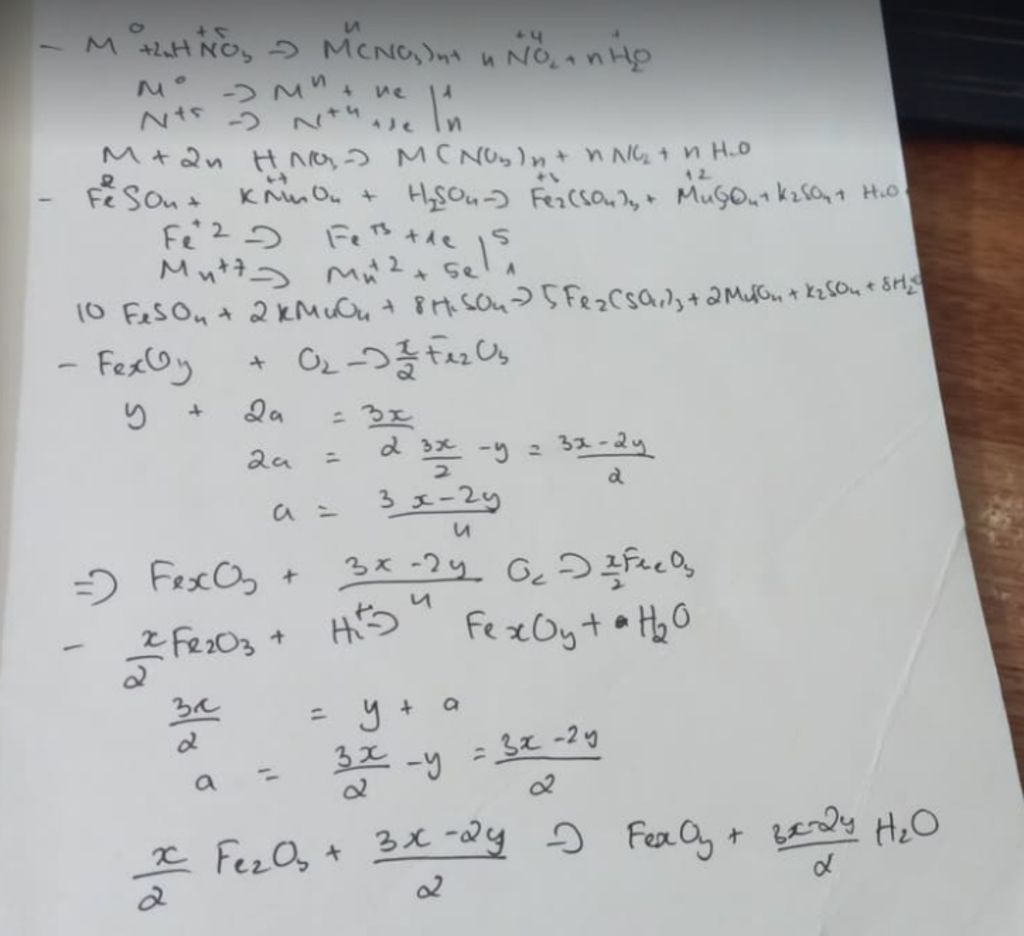 - M⁰ + 2nHN⁺⁵O₃ => Mⁿ(NO₃)n + nN⁺⁴O₂ + nH₂O
M⁰ -> Mⁿ + ne | 1
N⁺⁵ -> N⁺⁴ + 1e | n
M + 2n HNO₃ => M(NO₃)n + nNO₂ + n H₂O
- Fe⁺²SO₄ + KMn⁺⁷O₄ + H₂SO₄ => Fe₂⁺³(SO₄)₃ + Mn⁺²SO₄ + K₂SO₄ + H₂O
Fe⁺² => Fe⁺³ + 1e | 5
Mn⁺⁷ => Mn⁺² + 5e | 1
10 FeSO₄ + 2KMnO₄ + 8H₂SO₄ => 5Fe₂(SO₄)₃ + 2MnSO₄ + K₂SO₄ + 8H₂O
- FexOy + O₂ => x/2 Fe₂O₃
y + 2a = 3x/2
2a = 3x/2 - y = 3x-2y/2
a = 3x-2y/4
=> FexO₃ + 3x-2y/4 O₂ => x/2 Fe₂O₃
- x/2 Fe₂O₃ + H₂ => FexOy + a H₂O
3x/2 = y + a
a = 3x/2 - y = 3x-2y/2
x/2 Fe₂O₃ + 3x-2y/2 => FexOy + 3x-2y/2 H₂O